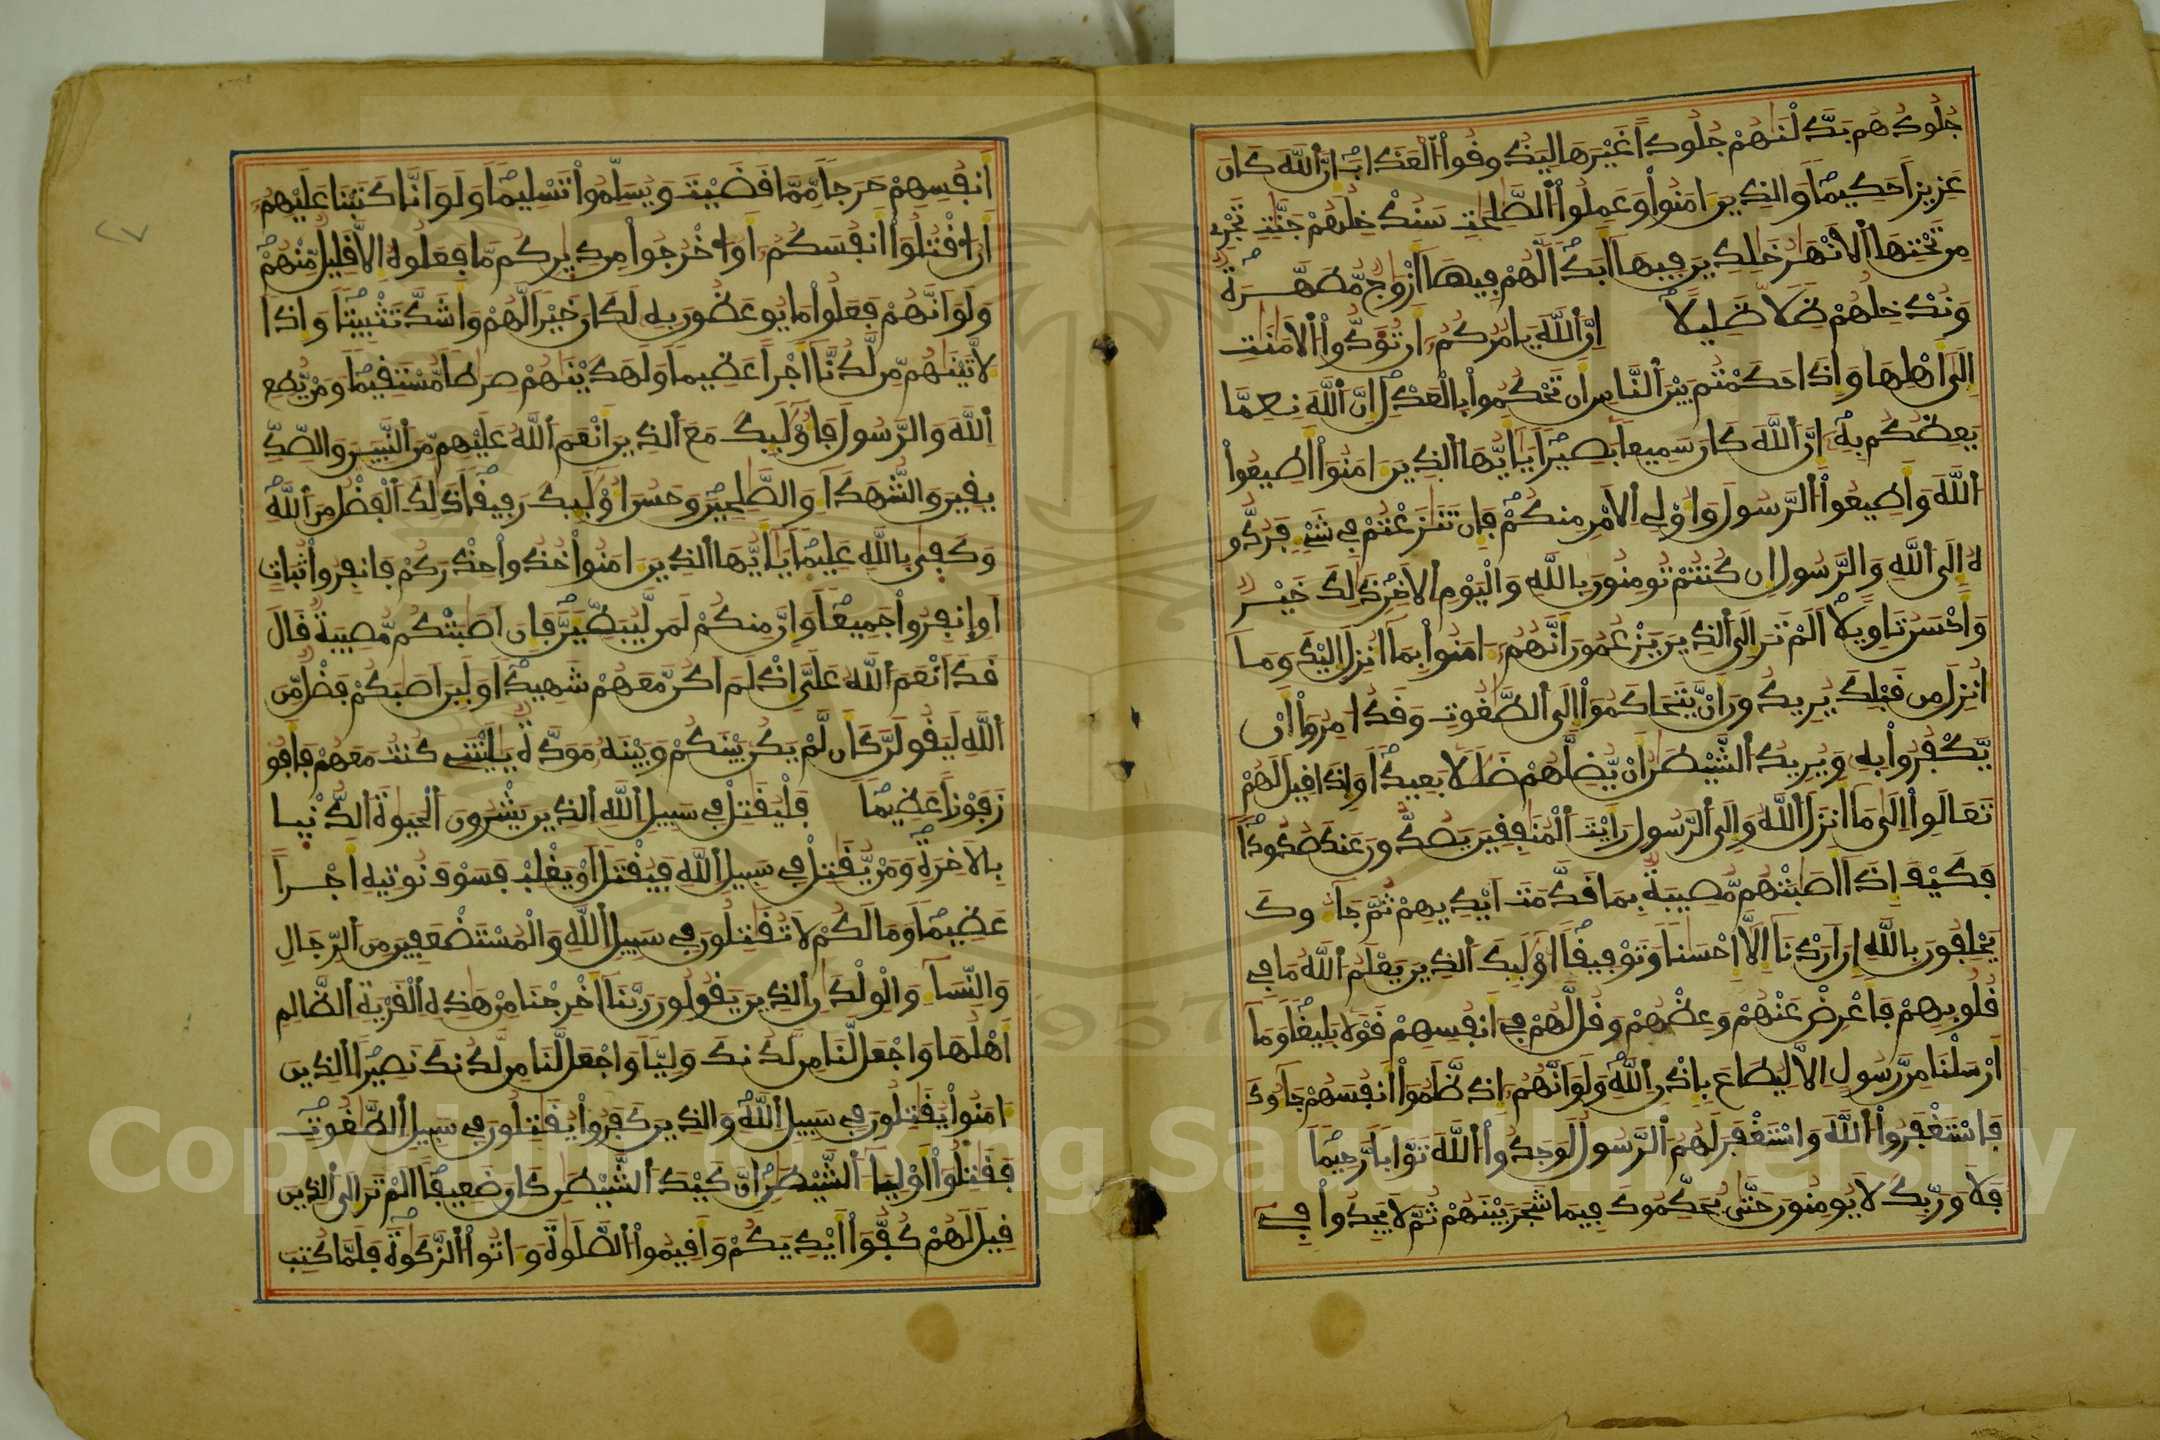 جُلُودُهُم بَدَّلْنَٰهُمْ جُلُوداً غَيْرَهَا لِيَذُوقُواْ اُ۬لْعَذَابَ إِنَّ اَ۬للَّهَ كَانَ
عَزِيزاً حَكِيماً وَالذِينَ ءَامَنُواْ وَعَمِلُواْ اُ۬لصَّٰلِحَٰتِ سَنُدْخِلُهُمْ جَنَّٰتٍ تَجْرِے
مِن تَحْتِهَا اَ۬لَانْهَٰرُ خَٰلِدِينَ فِيهَا أَبَداً لَّهُمْ فِيهَا أَزْوَٰجٌ مُّطَهَّرَةٌ
وَنُدْخِلُهُمْ ظِلّاً ظَلِيلاً إِنَّ اَ۬للَّهَ يَامُرُكُمُۥٓ أَن تُوَدُّواْ اُ۬لَامَٰنَٰتِ
إِلَىٰٓ أَهْلِهَا وَإِذَا حَكَمْتُم بَيْنَ اَ۬لنَّاسِ أَن تَحْكُمُواْ بِالْعَدْلِ إِنَّ اَ۬للَّهَ نِعِمَّا
يَعِظُكُم بِهِۦٓ إِنَّ اَ۬للَّهَ كَانَ سَمِيعاً بَصِيراً يَٰٓأَيُّهَا اَ۬لذِينَ ءَامَنُوٓاْ أَطِيعُواْ
اُ۬للَّهَ وَأَطِيعُواْ اُ۬لرَّسُولَ وَأُوْلِے اِ۬لَامْرِ مِنكُمْ فَإِن تَنَٰزَعْتُمْ فِے شَےْءٍ فَرُدُّو
هُ إِلَى اَ۬للَّهِ وَالرَّسُولِ إِن كُنتُمْ تُومِنُونَ بِاللَّهِ وَالْيَوْمِ اِ۬لَاخِرِ ذَٰلِكَ خَيْرٌ
وَأَحْسَنُ تَاوِيلاً اَلَمْ تَرَ إِلَى اَ۬لذِينَ يَزْعُمُونَ أَنَّهُمُۥٓ ءَامَنُواْ بِمَآ أُنزِلَ إِلَيْكَ وَمَآ
أُنزِلَ مِن قَبْلِكَ يُرِيدُونَ أَنْ يَّتَحَاكَمُوٓاْ إِلَى اَ۬لطَّٰغُوتِ وَقَدُ ا۟مِرُوٓاْ أَنْ
يَّكْفُرُواْ بِهِۦ وَيُرِيدُ اُ۬لشَّيْطَٰنُ أَنْ يُّضِلَّهُمْ ضَلَٰلاً بَعِيداً وَإِذَا قِيلَ لَهُمْ
تَعَالَوِاْ اِلَىٰ مَآ أَنزَلَ اَ۬للَّهُ وَإِلَى اَ۬لرَّسُولِ رَأَيْتَ اَ۬لْمُنَٰفِقِينَ يَصُدُّونَ عَنكَ صُدُوداً
فَكَيْفَ إِذَآ أَصَٰبَتْهُم مُّصِيبَةٌ بِمَا قَدَّمَتَ اَيْدِيهِمْ ثُمَّ جَآءُوكَ
يَحْلِفُونَ بِاللَّهِ إِنَ اَرَدْنَآ إِلَّآ إِحْسَٰناً وَتَوْفِيقاً اُوْلَٰٓئِكَ اَ۬لذِينَ يَعْلَمُ اُ۬للَّهُ مَا فِے
قُلُوبِهِمْ فَأَعْرِضْ عَنْهُمْ وَعِظْهُمْ وَقُل لَّهُمْ فِےٓ أَنفُسِهِمْ قَوْلاً بَلِيغاً وَمَآ
أَرْسَلْنَا مِن رَّسُولٍ اِلَّا لِيُطَاعَ بِإِذْنِ اِ۬للَّهِ وَلَوَ اَنَّهُمُۥٓ إِذ ظَّلَمُوٓاْ أَنفُسَهُمْ جَآءُوكَ
فَاسْتَغْفَرُواْ اُ۬للَّهَ وَاسْتَغْفَرَ لَهُمُ اُ۬لرَّسُولُ لَوَجَدُواْ اُ۬للَّهَ تَوَّاباً رَّحِيماً
فَلَا وَرَبِّكَ لَا يُومِنُونَ حَتَّىٰ يُحَكِّمُوكَ فِيمَا شَجَرَ بَيْنَهُمْ ثُمَّ لَا يَجِدُواْ فِےٓ
أَنفُسِهِمْ حَرَجاً مِّمَّا قَضَيْتَ وَيُسَلِّمُواْ تَسْلِيماً وَلَوَ اَنَّا كَتَبْنَا عَلَيْهِمُۥٓ
أَنُ ا۟قْتُلُوٓاْ أَنفُسَكُمُۥٓ أَوُ ا۟خْرُجُواْ مِن دِيٰرِكُم مَّا فَعَلُوهُ إِلَّا قَلِيلٌ مِّنْهُمْ
وَلَوَ اَنَّهُمْ فَعَلُواْ مَا يُوعَظُونَ بِهِۦ لَكَانَ خَيْراً لَّهُمْ وَأَشَدَّ تَثْبِيتاً وَإِذاً
لَّأٓتَيْنَٰهُم مِّن لَّدُنَّآ أَجْراً عَظِيماً وَلَهَدَيْنَٰهُمْ صِرَٰطاً مُّسْتَقِيماً وَمَنْ يُّطِعِ
اِ۬للَّهَ وَالرَّسُولَ فَأُوْلَٰٓئِكَ مَعَ اَ۬لذِينَ أَنْعَمَ اَ۬للَّهُ عَلَيْهِم مِّنَ اَ۬لنَّبِيٓـِٕينَ وَالصِّدِّ
يقِينَ وَالشُّهَدَآءِ وَالصَّٰلِحِينَ وَحَسُنَ أُوْلَٰٓئِكَ رَفِيقاً ذَٰلِكَ اَ۬لْفَضْلُ مِنَ اَ۬للَّهِ
وَكَفَىٰ بِاللَّهِ عَلِيماً يَٰٓأَيُّهَا اَ۬لذِينَ ءَامَنُواْ خُذُواْ حِذْرَكُمْ فَانفِرُواْ ثُبَاتٍ
اَوِ اِ۪نفِرُواْ جَمِيعاً وَإِنَّ مِنكُمْ لَمَن لَّيُبَطِّئَنَّ فَإِنَ اَصَٰبَتْكُم مُّصِيبَةٌ قَالَ
قَدَ اَنْعَمَ اَ۬للَّهُ عَلَيَّ إِذْ لَمَ اَكُن مَّعَهُمْ شَهِيداً وَلَئِنَ اَصَٰبَكُمْ فَضْلٌ مِّنَ
اَ۬للَّهِ لَيَقُولَنَّ كَأَن لَّمْ يَكُن بَيْنَكُمْ وَبَيْنَهُۥ مَوَدَّةٌ يَٰلَيْتَنِے كُنتُ مَعَهُمْ فَأَفُو
زَ فَوْزاً عَظِيماً فَلْيُقَٰتِلْ فِے سَبِيلِ اِ۬للَّهِ اِ۬لذِينَ يَشْرُونَ اَ۬لْحَيَوٰةَ اَ۬لدُّنْيا
بِالَاخِرَةِ وَمَنْ يُّقَٰتِلْ فِے سَبِيلِ اِ۬للَّهِ فَيُقْتَلَ اَوْ يَغْلِبْ فَسَوْفَ نُوتِيهِ أَجْراً
عَظِيماً وَمَا لَكُمْ لَا تُقَٰتِلُونَ فِے سَبِيلِ اِ۬للَّهِ وَالْمُسْتَضْعَفِينَ مِنَ اَ۬لرِّجَالِ
وَالنِّسَآءِ وَالْوِلْدَٰنِ اِ۬لذِينَ يَقُولُونَ رَبَّنَآ أَخْرِجْنَا مِنْ هَٰذِهِ اِ۬لْقَرْيَةِ اِ۬لظَّالِمِ
أَهْلُهَا وَاجْعَل لَّنَا مِن لَّدُنكَ وَلِيّاً وَاجْعَل لَّنَا مِن لَّدُنكَ نَصِيراً اِ۬لذِينَ
ءَامَنُواْ يُقَٰتِلُونَ فِے سَبِيلِ اِ۬للَّهِ وَالذِينَ كَفَرُواْ يُقَٰتِلُونَ فِے سَبِيلِ اِ۬لطَّٰغُوتِ
فَقَٰتِلُوٓاْ أَوْلِيَآءَ اَ۬لشَّيْطَٰنِ إِنَّ كَيْدَ اَ۬لشَّيْطَٰنِ كَانَ ضَعِيفاً اَلَمْ تَرَ إِلَى اَ۬لذِينَ
قِيلَ لَهُمْ كُفُّوٓاْ أَيْدِيَكُمْ وَأَقِيمُواْ اُ۬لصَّلَوٰةَ وَءَاتُواْ اُ۬لزَّكَوٰةَ فَلَمَّا كُتِبَ
Copyright to King Saud University
1957